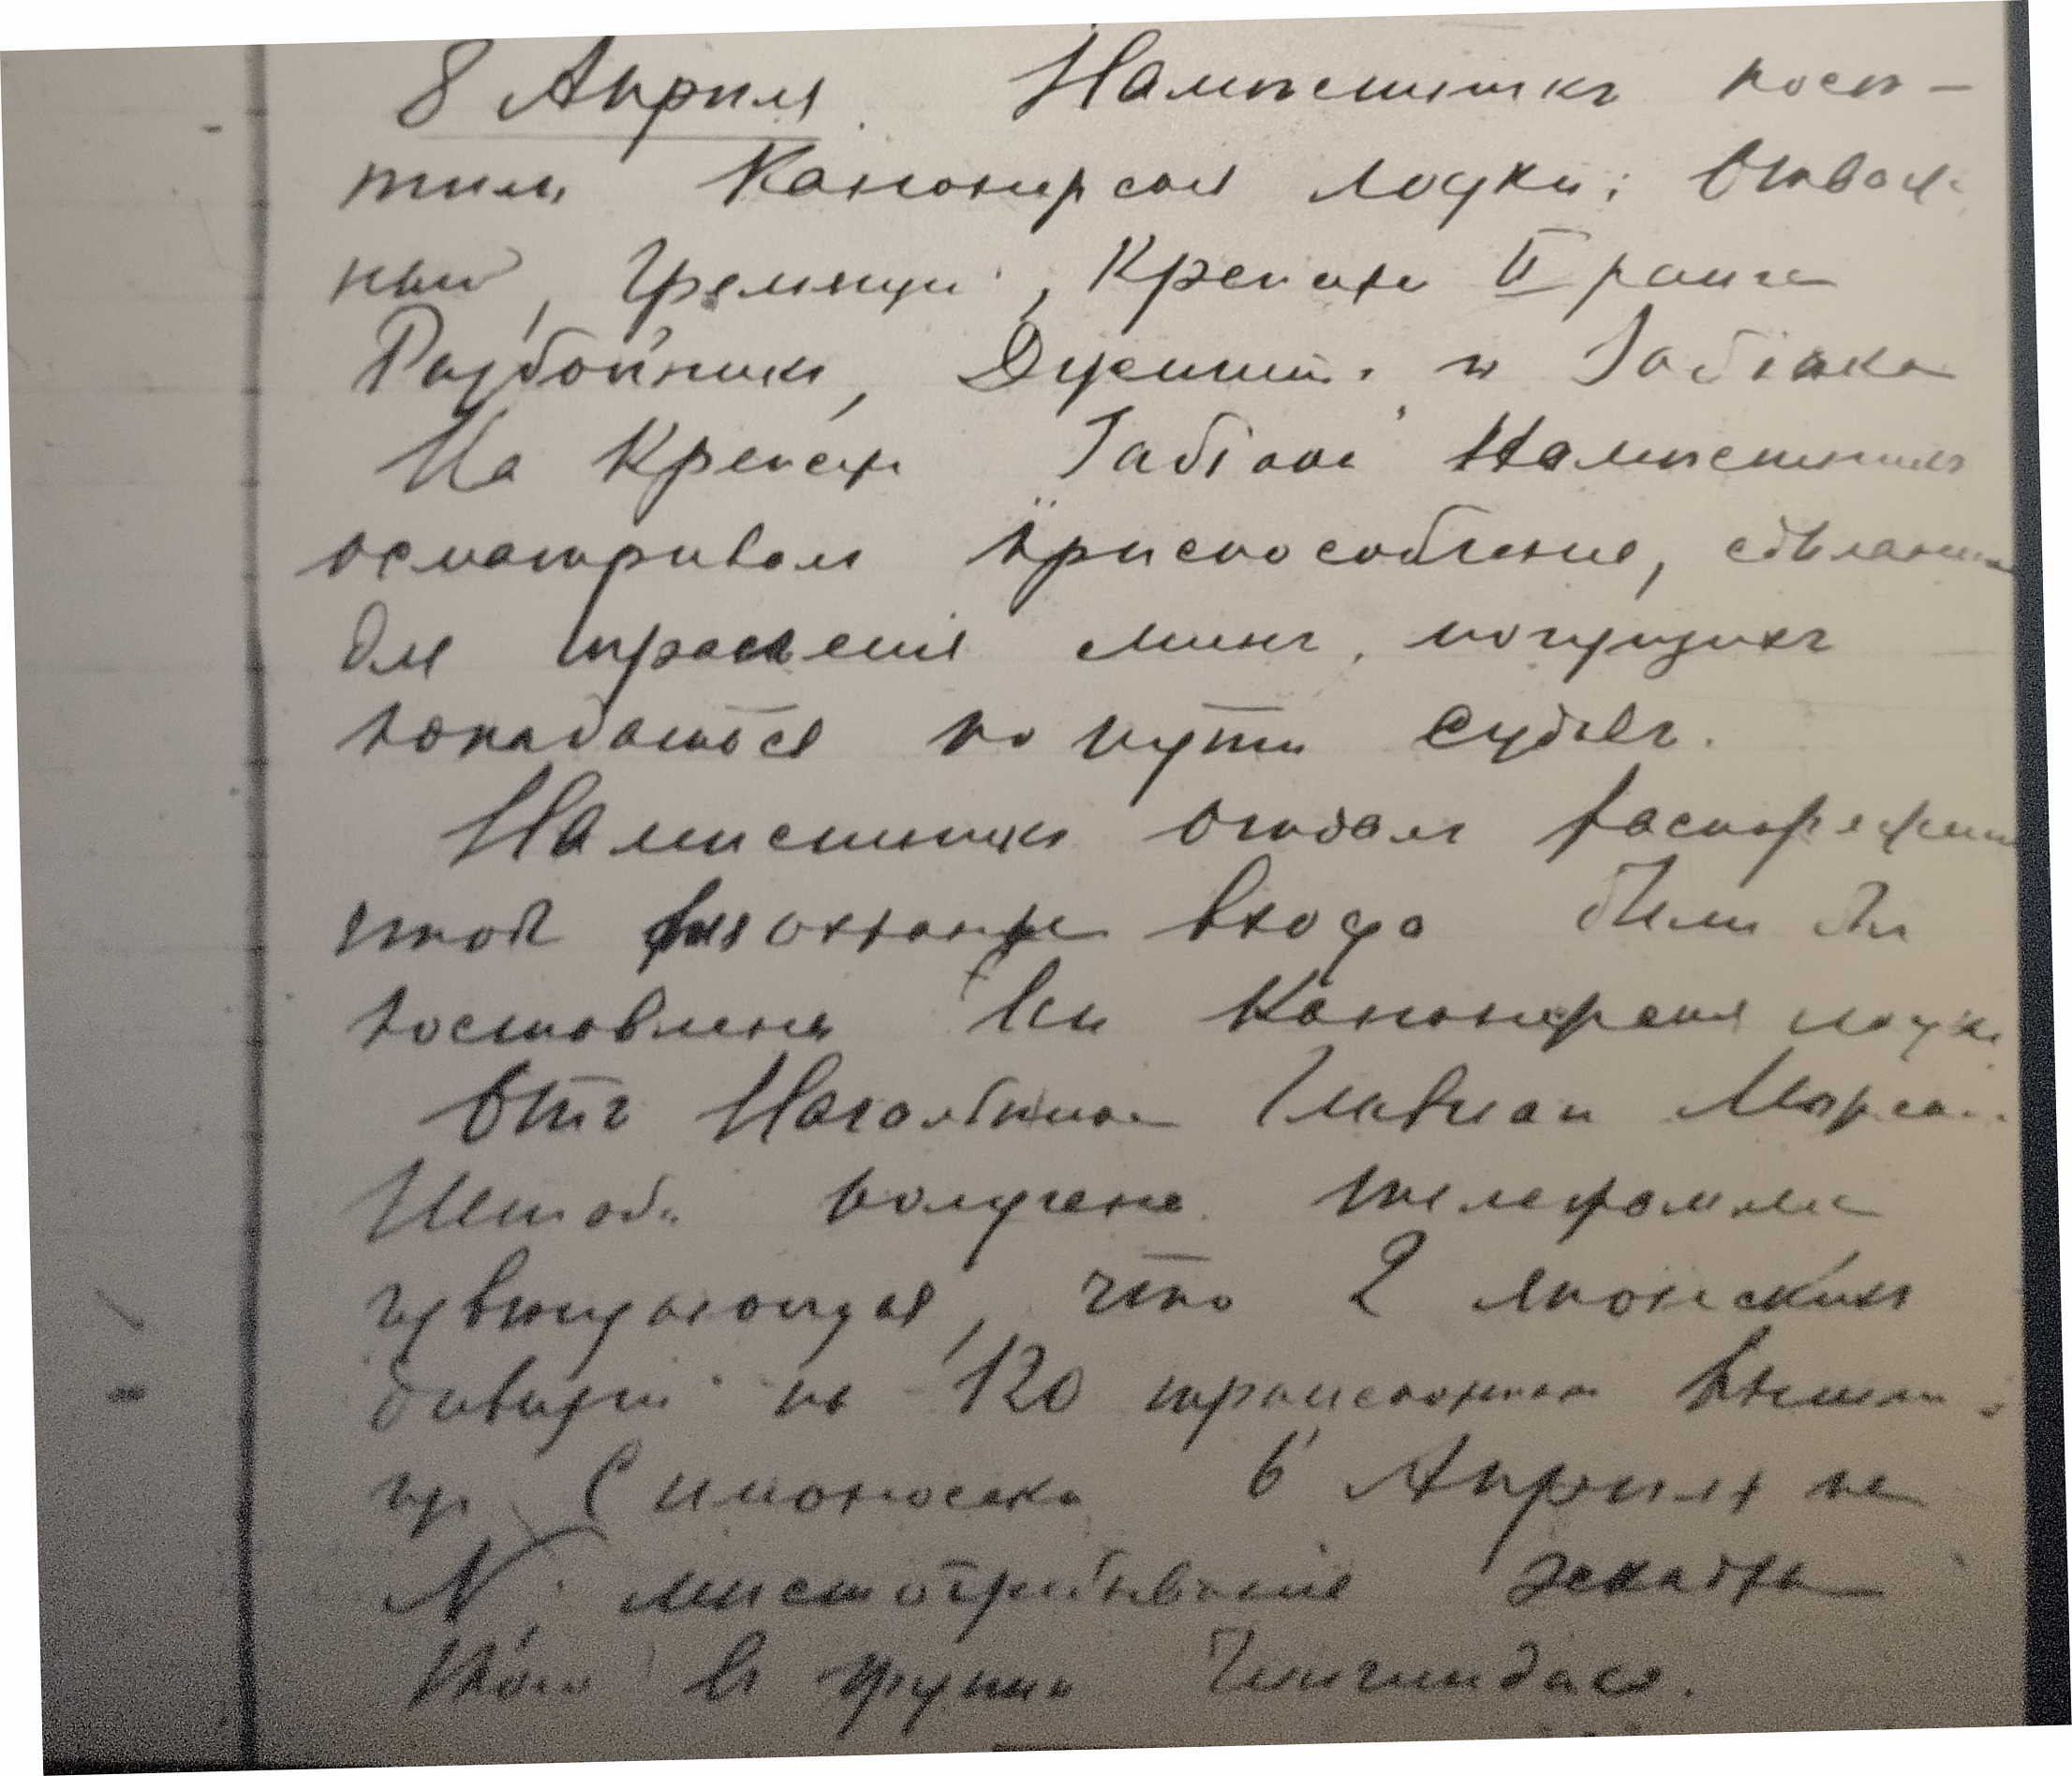 8 Апреля Намѣстникъ посѣ-
тилъ Канонерскія лодки: Отваж-
ный, Гремящій, Крейсера II ранга
Разбойникъ, Джигитъ и Забіяка
На Крейсерѣ Забіяка Намѣстникъ
осматривалъ приспособленіе, сдѣланныя
для траленія минъ, могущихъ
попадаться по пути судовъ.
Намѣстникъ отдалъ распоряженіе
чтоб для охраны входа были бы
поставлены все Канонерскія лодки
Отъ Начальника Главнаго Морск.
Штаба получена телеграмма
извѣщающая, что 2 японскихъ
дивизіи на 120 транспортахъ вышли
изъ Симоносеки 6 Апрѣля на
N; мѣстопребываніе эскадры
Того в группѣ Клиффорда.